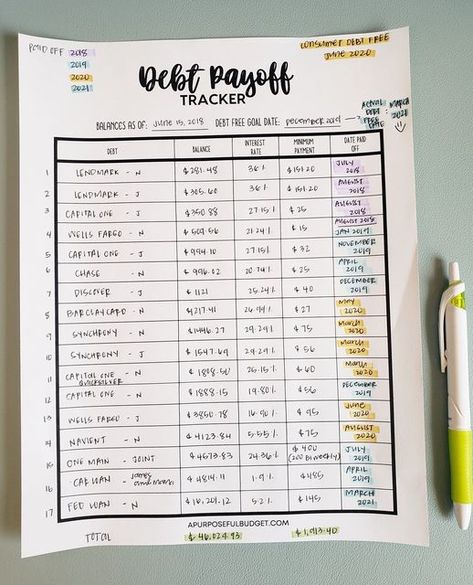 PAID OFF 2018
2019
2020
2021
CONSUMER DEBT FREE
JUNE 2020
Debt Payoff
TRACKER
BALANCES AS OF: June 15, 2018 DEBT FREE GOAL DATE: December 2019
ACTUAL DEBT FREE DATE MARCH 2021
DEBT BALANCE INTEREST RATE MINIMUM PAYMENT DATE PAID OFF
1 LENDMARK - N $281.48 36% $151.20 JULY 2018
2 LENDMARK - J $305.60 36% $151.20 AUGUST 2018
3 CAPITAL ONE - J $350.88 27.15% $25 AUGUST 2018
4 WELLS FARGO - N $509.56 21.24% $15 AUGUST 2018 JAN 2019
5 CAPITAL ONE - J $994.10 27.15% $32 NOVEMBER 2019
6 CHASE - N $996.02 20.74% $25 APRIL 2019
7 DISCOVER - J $1121 25.24% $40 DECEMBER 2019
8 BARCLAYCARD - N $1217.41 26.99% $27 MAY 2020
9 SYNCHRONY - N $1446.27 29.24% $75 March 2020
10 SYNCHRONY - J $1547.69 29.24% $56 March 2020
11 CAPITAL ONE QUICKSILVER - N 25.15% $60 March 2020
12 CAPITAL ONE - N $1888.15 19.80% $56 DECEMBER 2019
13 WELLS FARGO - J $3850.78 16.90% $95 June 2020
14 NAVIENT - N $4123.84 5.55% $75 AUGUST 2020
15 ONE MAIN - JOINT $4673.83 24.36% $400 (200 BIWEEKLY) JULY 2019
16 CAR LOAN - $4814.11 1.9% $485 APRIL 2019
17 FED LOAN - N $16,201.12 5.2% $145 MARCH 2021
APURPOSEFULBUDGET.COM
TOTAL $46,024.93 $1,913.40